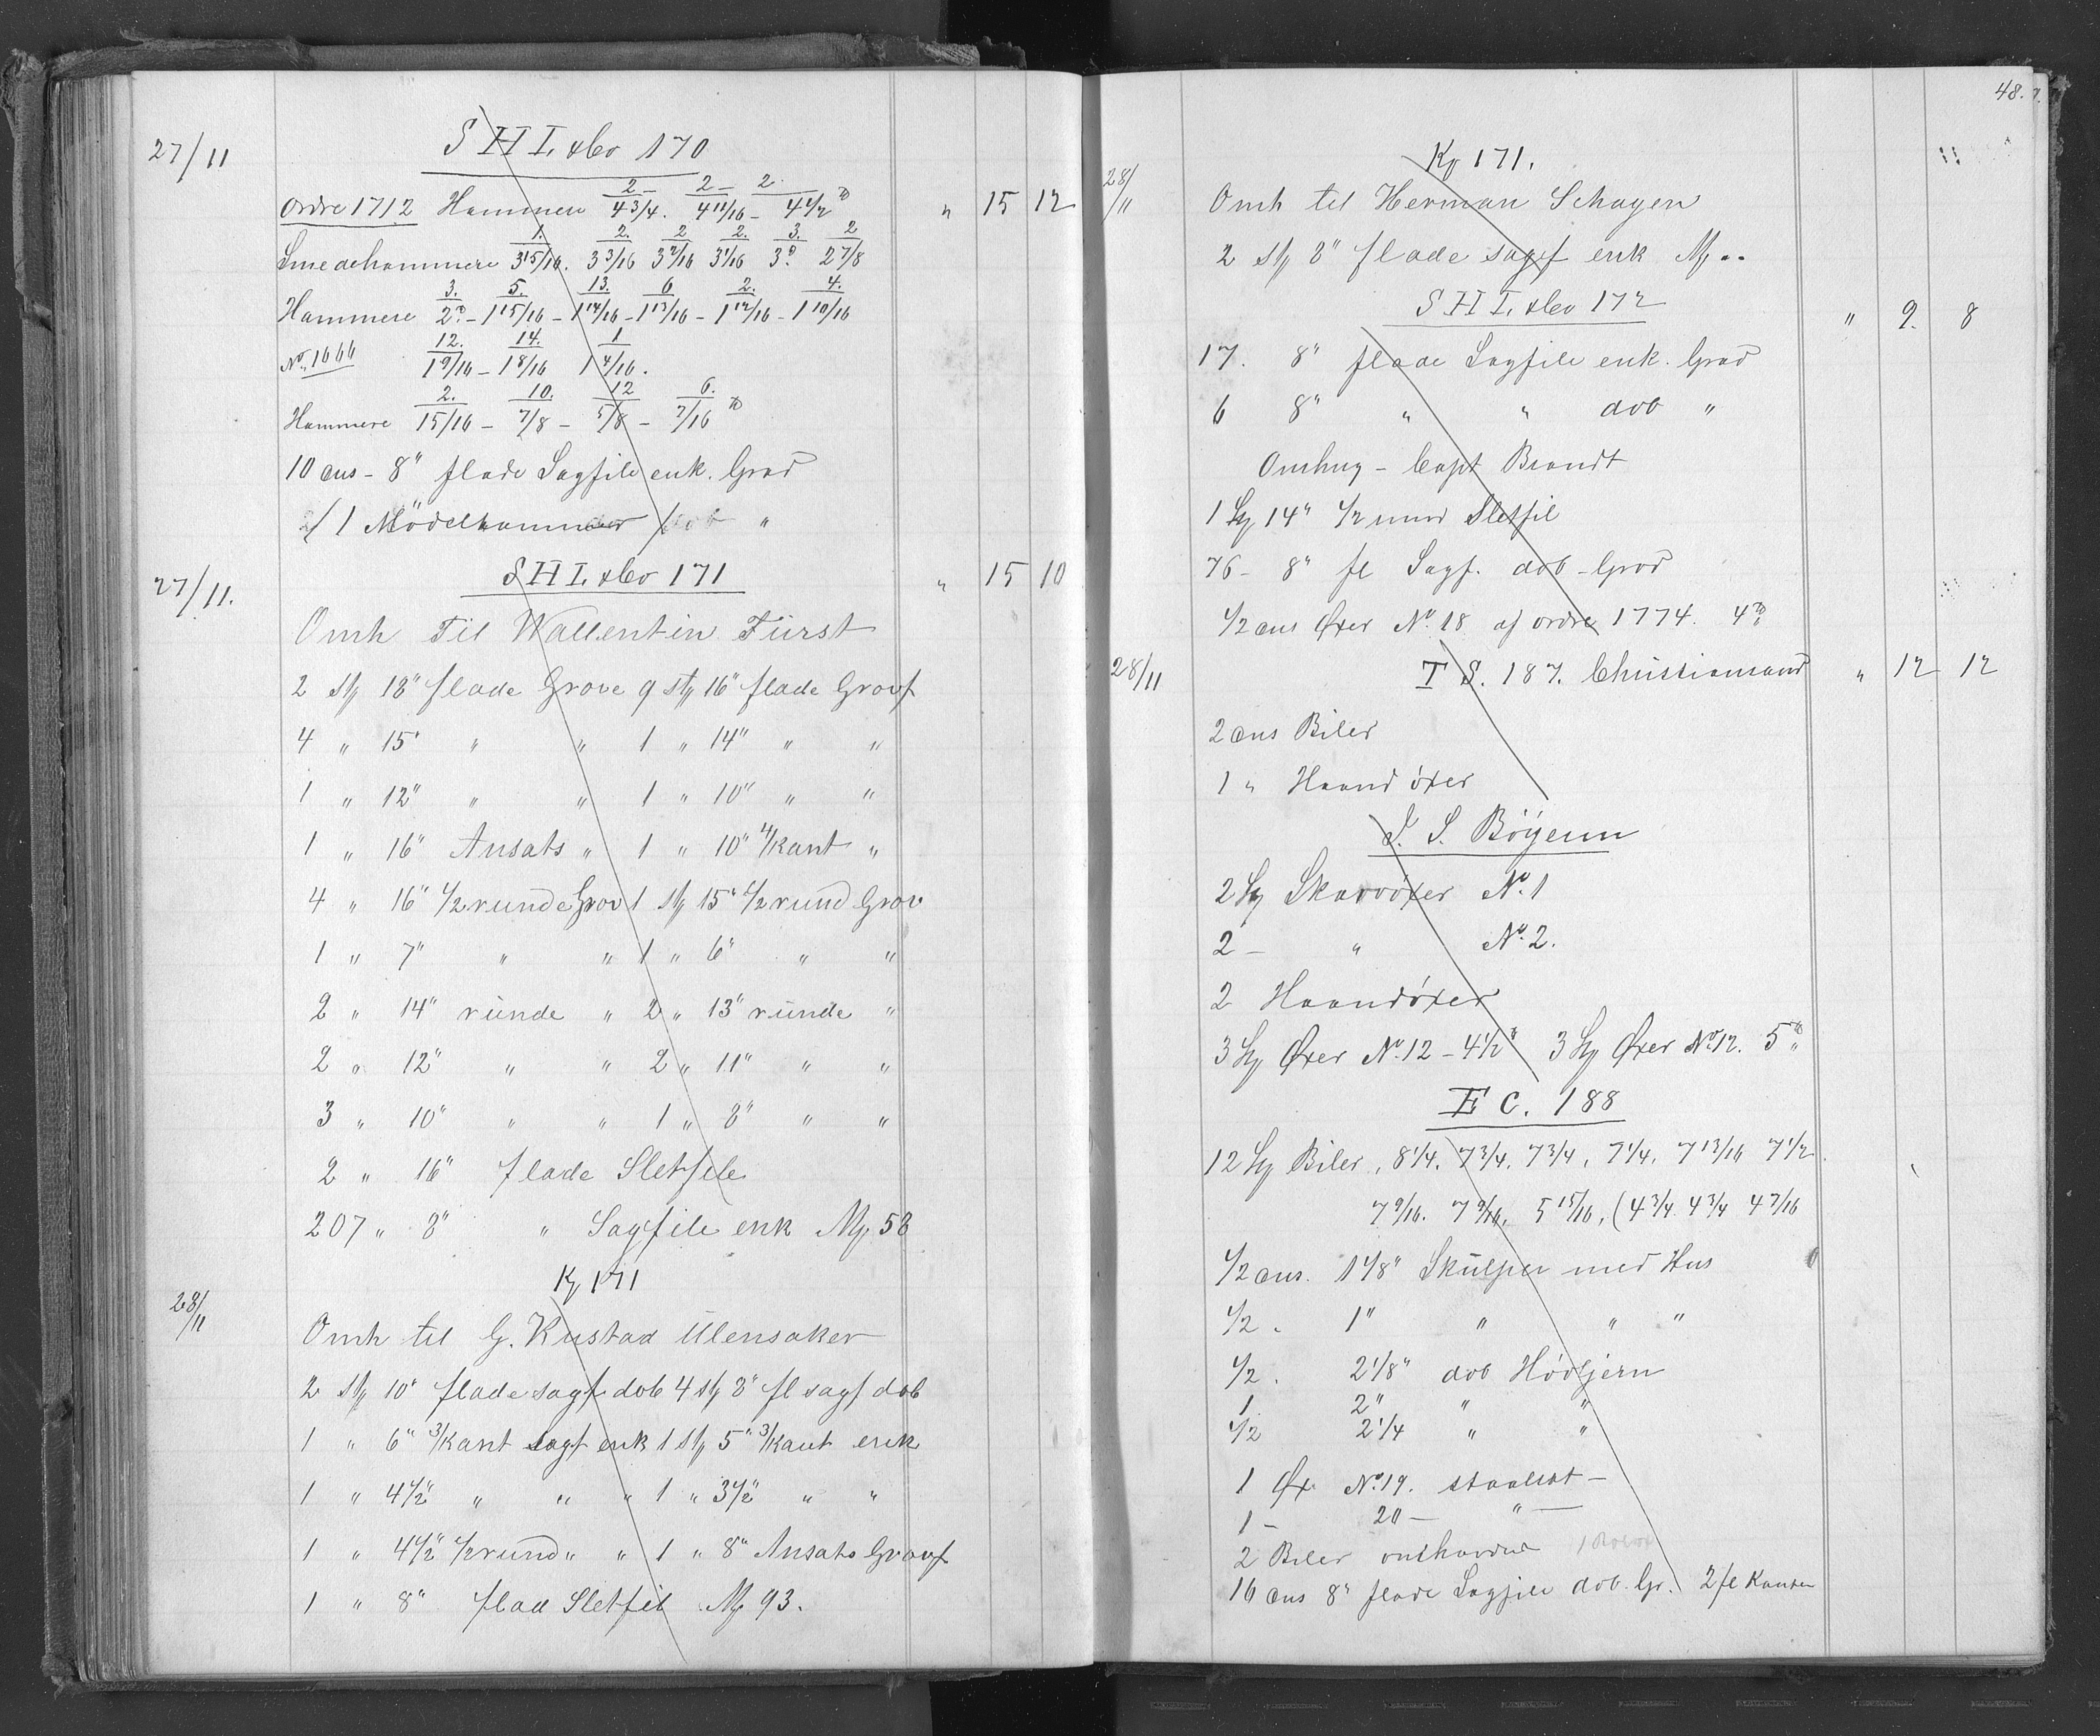 27/11 S H L & Co 170
Ordre 1712 Hammere 2/4 3/4. 2/4 11/16 - 2/4 1/2 ℔ " 15 12
Smedehammere 1./3 15/16. 2./3 3/16 2/3 2/16 2./3 1/16 3./3 ℔ 2/2 7/8
Hammere 3./2 ℔ - 5./1 15/16 - 13./1 14/16 - 6/1 13/16 - 2./1 12/16 - 4./1 10/16
No. 1666 12./1 9/16 - 14./1 8/16 1/1 4/16.
Hammere 2./15/16 - 10./7/8 - 12/5/8 - 6./7/16 ℔
10 dus - 8" flade Sagfile enk. Grad
1 Mödelhammer dob "
27/11. S H L & Co 171 " 15 10
Omh Til Wallentin Fürst
2 stk 18" flade Grove 9 stk 16" flade Grovf
4 " 15" " " 1 " 14" " "
1 " 12" " " 1 " 10" " "
1 " 16" Ansats " 1 " 10" 4/kant "
4 " 16" 1/2 runde Grov 1 stk 15" 1/2 rund Grov
1 " 7" " " 1 " 6" " "
2 " 14" runde " 2 " 13" runde "
2 " 12" " " 2 " 11" " "
3 " 10" " " 1 " 8" " "
2 " 16" flade Sletfile
207 " 8" " Sagfile enk Mk 58
28/11 Kg 171
Omh til G. Kustad Ulensaker
2 stk 10" flade sagf dob 4 stk 8" fl sagf dob
1 " 6" 3/kant sagf enk 1 stk 5" 3/kant enk
1 " 4 1/2" " " " 1 " 3 1/2" " "
1 " 4 1/2" 1/2 rund " " 1 " 8" Ansats Grovf
1 " 8" flad Sletfil Mk 93.
48.
28/11 Kg 171.
Omh til Herman Schagen
2 stk 8" flade sagf enk Mk ..
S H L & Co 172 " 9. 8
17. 8" flade Sagfile enk. Grad
6 8" " " dob "
Omhug - Capt Brandt
1 Stk 14" 1/2 rund Sletfil
76 - 8" fl Sagf. dob - Grad
1/2 dus Øxer No. 18 af ordre 1774. 4 ℔
28/11 T S. 187. Christiansand " 12 12
2 dus Biler
1 " Haandöxer
S. Böyeum
2 Stk Skovöxer No. 1
2 - " No. 2.
2 Haandöxer
3 Stk Øxer No. 12 - 4 1/2 ℔ 3 Stk Øxer No. 12. 5 ℔
E C. 188
12 Stk Biler, 8 1/4. 7 3/4. 7 3/4, 7 1/4. 7 13/16 7 1/2
7 9/16. 7 9/16. 5 15/16, (4 3/4 4 3/4 4 7/16
1/2 dus. 1 1/8" Skulper med Hus
1/2 . 1" " " "
1/2 . 2 1/8" dob Hövljern
1 2" " "
1/2 2 1/4 " "
1 Øx No. 19. staalsat -
1 - 20 - " -
2 Biler omhærdet
16 dus 8" flade Sagfile dob. Gr. 2 fl Kanter